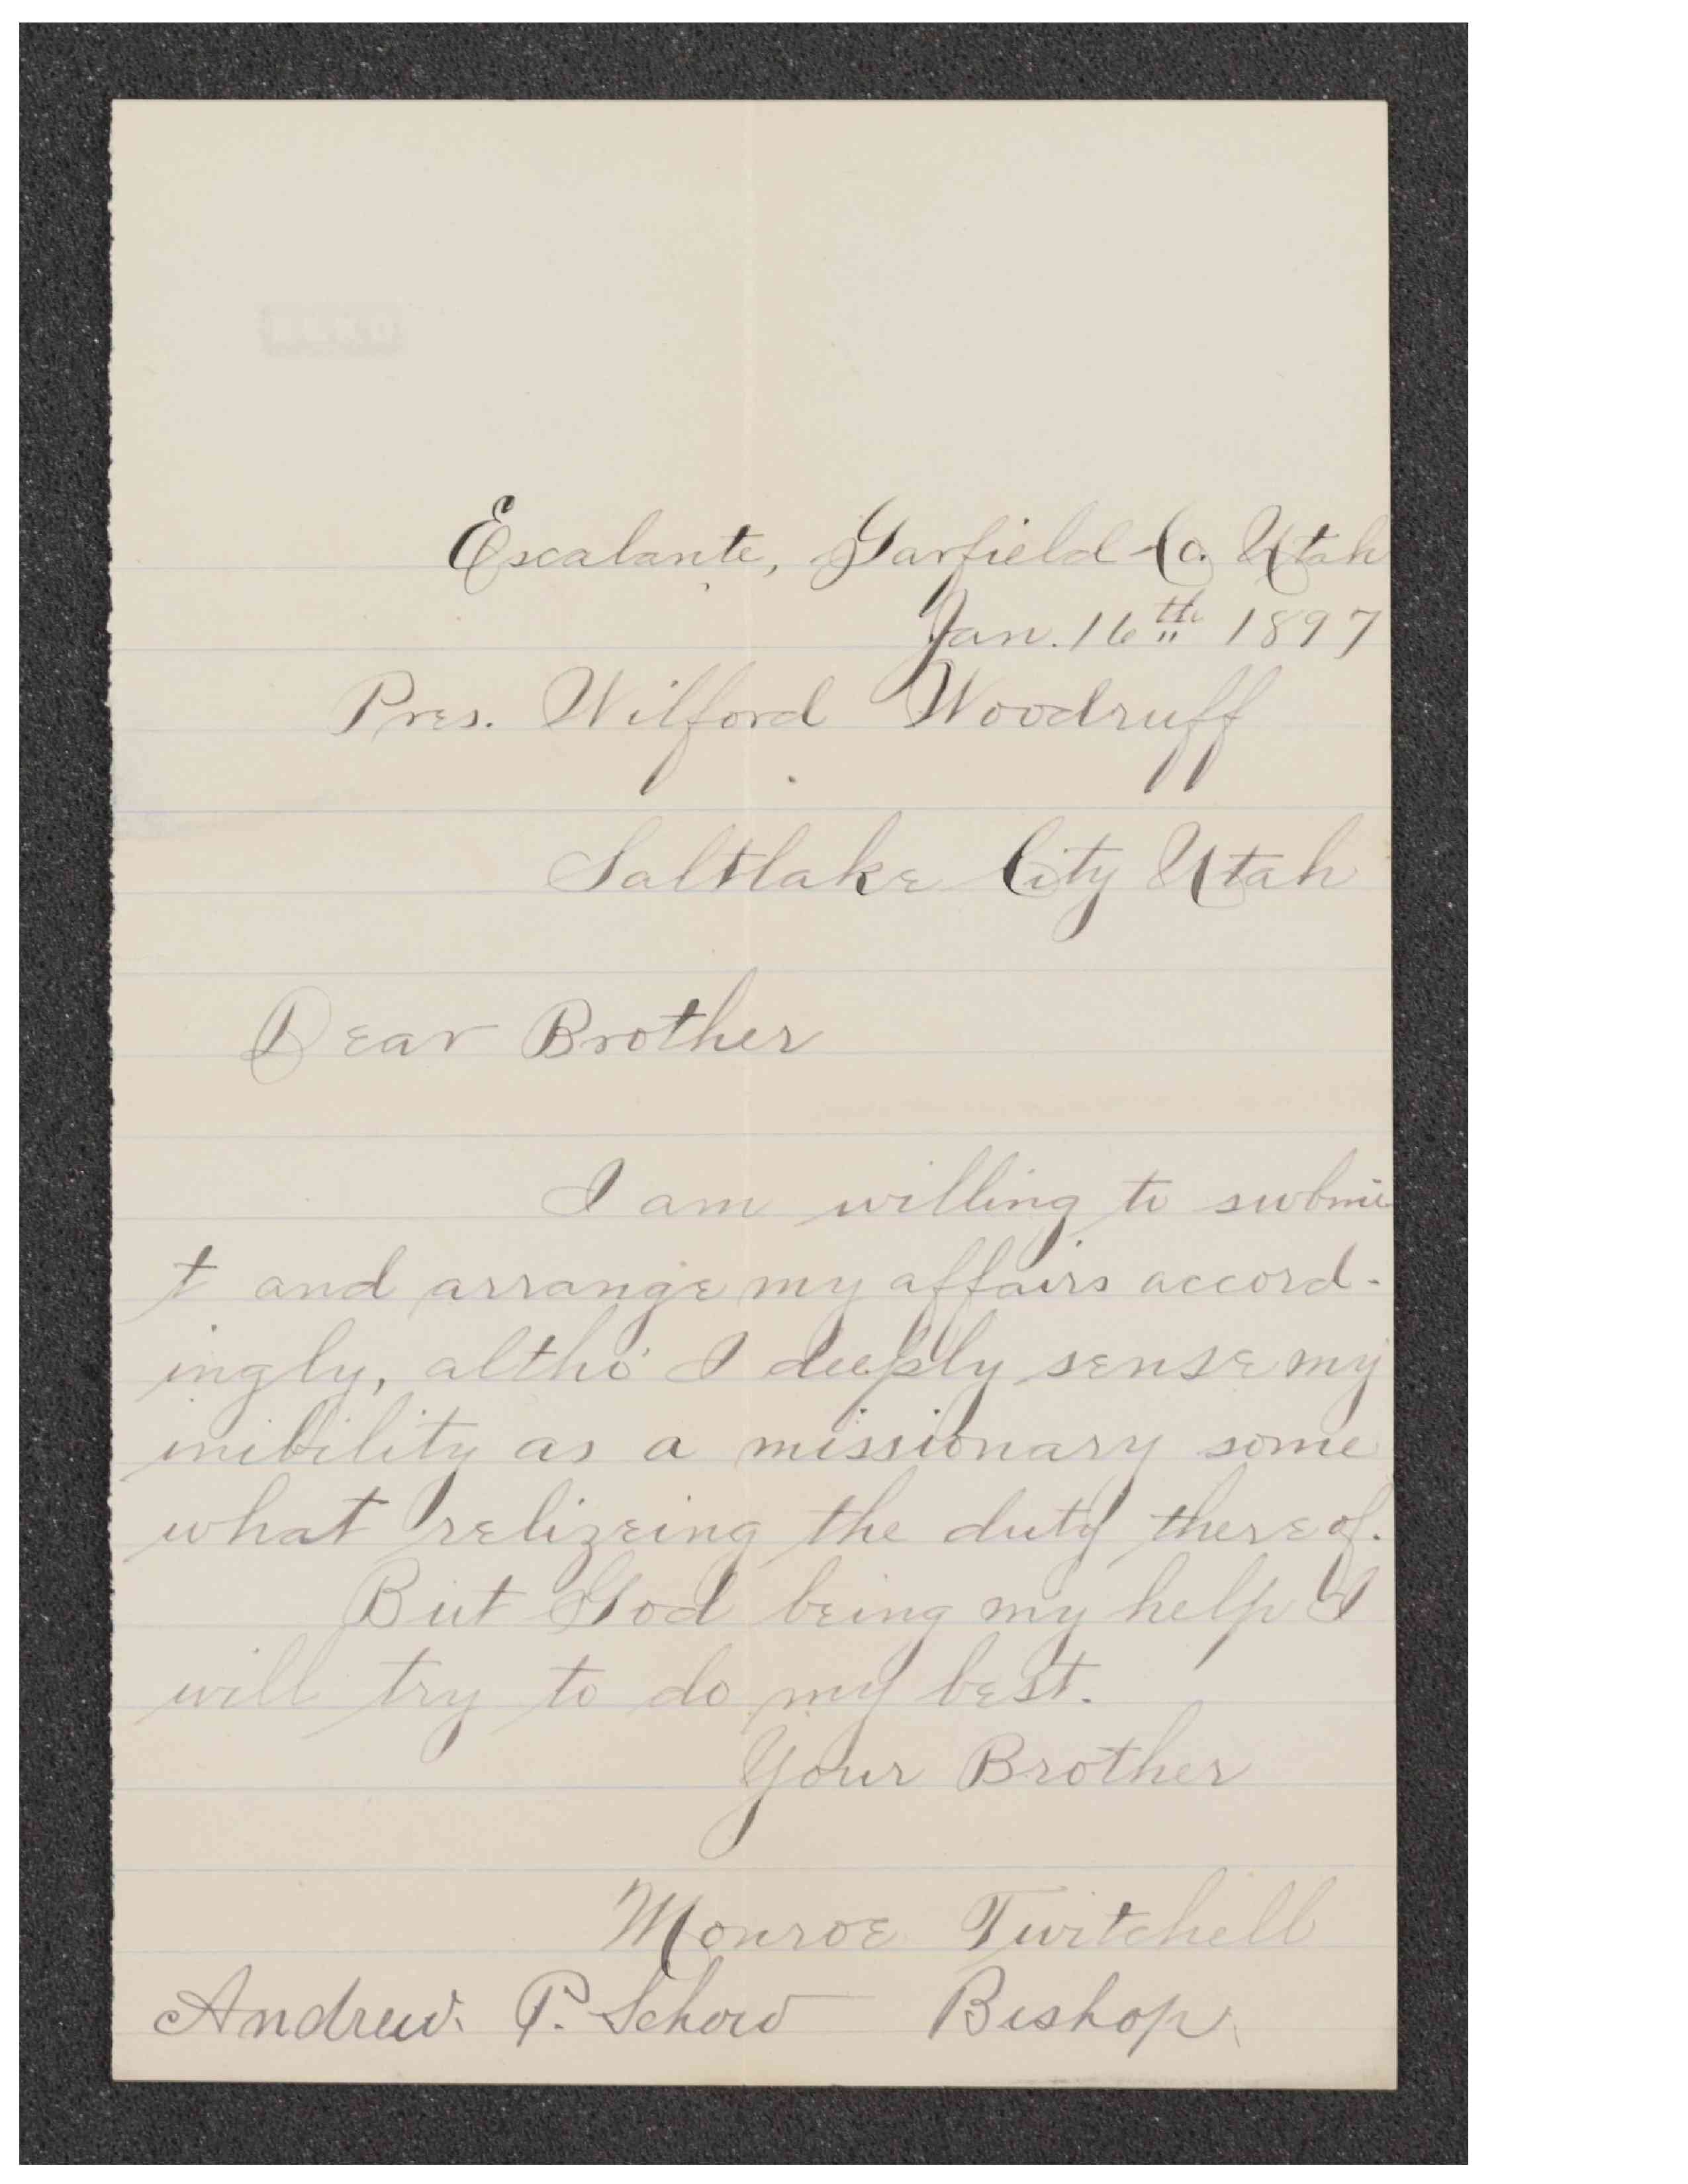 Escalante, Garfield Co. Utah
Jan. 16th 1897
Pres. Wilford Woodruff
Saltlake City Utah
Dear Brother
I am willing to submi
t and arrange my affairs accord-
ingly, altho' I deeply sense my
inibility as a missionary some
what relizeing the duty thereof.
But God being my help I
will try to do my best.
Your Brother
Monroe Twitchell
Andrew. P. Schow Bishop